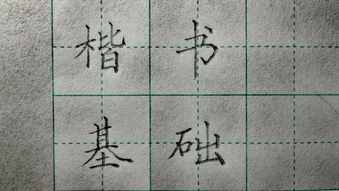 楷书
基础